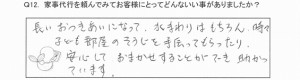 Q12. 家事代行を頼んでみてお客様にとってどんないい事がありましたか？
長いおつきあいになって、水まわりはもちろん、時々
子ども部屋のそうじを手伝ってもらったり、
安心しておまかせすることができ助かっ
ています。